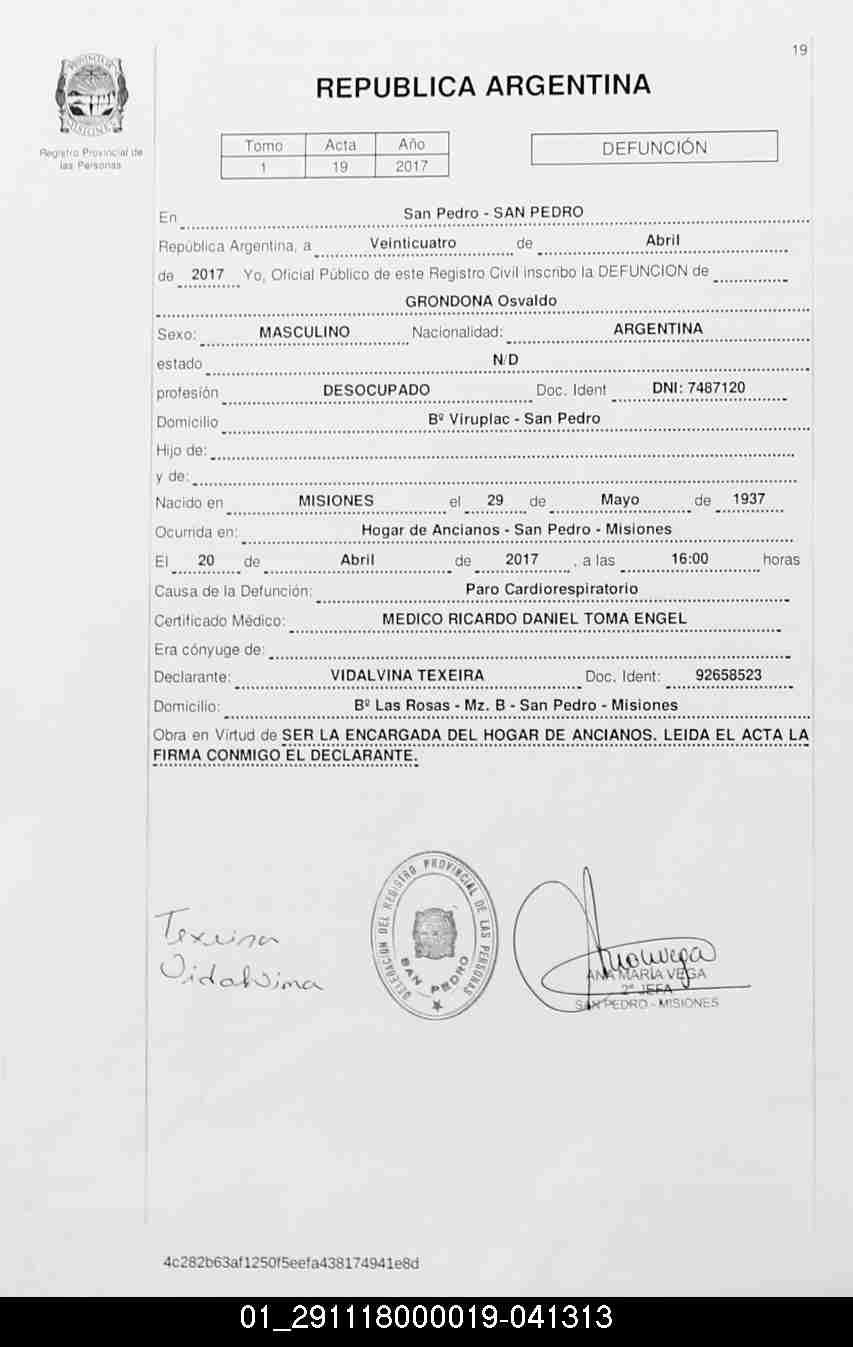 19
REPUBLICA ARGENTINA
PROVINCIA
MISIONES
Registro Provincial de
las Personas
Tomo Acta Año
1 19 2017
DEFUNCIÓN
En San Pedro - SAN PEDRO
República Argentina, a Veinticuatro de Abril
de 2017 Yo, Oficial Público de este Registro Civil inscribo la DEFUNCION de
GRONDONA Osvaldo
Sexo: MASCULINO Nacionalidad: ARGENTINA
estado N/D
profesión DESOCUPADO Doc. Ident DNI: 7487120
Domicilio Bº Viruplac - San Pedro
Hijo de:
y de:
Nacido en MISIONES el 29 de Mayo de 1937
Ocurrida en: Hogar de Ancianos - San Pedro - Misiones
El 20 de Abril de 2017, a las 16:00 horas
Causa de la Defunción: Paro Cardiorespiratorio
Certificado Médico: MEDICO RICARDO DANIEL TOMA ENGEL
Era cónyuge de:
Declarante: VIDALVINA TEXEIRA Doc. Ident: 92658523
Domicilio: Bº Las Rosas - Mz. B - San Pedro - Misiones
Obra en Virtud de SER LA ENCARGADA DEL HOGAR DE ANCIANOS. LEIDA EL ACTA LA
FIRMA CONMIGO EL DECLARANTE.
DELEGACION DEL REGISTRO PROVINCIAL DE LAS PERSONAS
SAN PEDRO
Texeira
Vidalvina
ANA MARÍA VEGA
2ª JEFA
SAN PEDRO - MISIONES
4c282b63af1250f5eefa438174941e8d
01_291118000019-041313